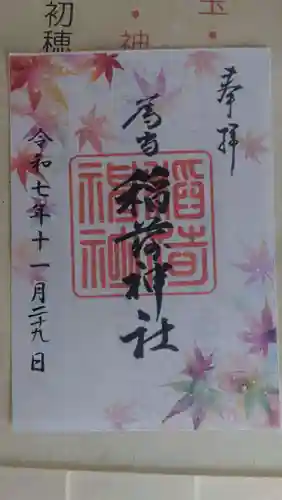 奉拝
稲荷神社
稲荷神社
令和七年十一月二十九日
初穂
玉
神